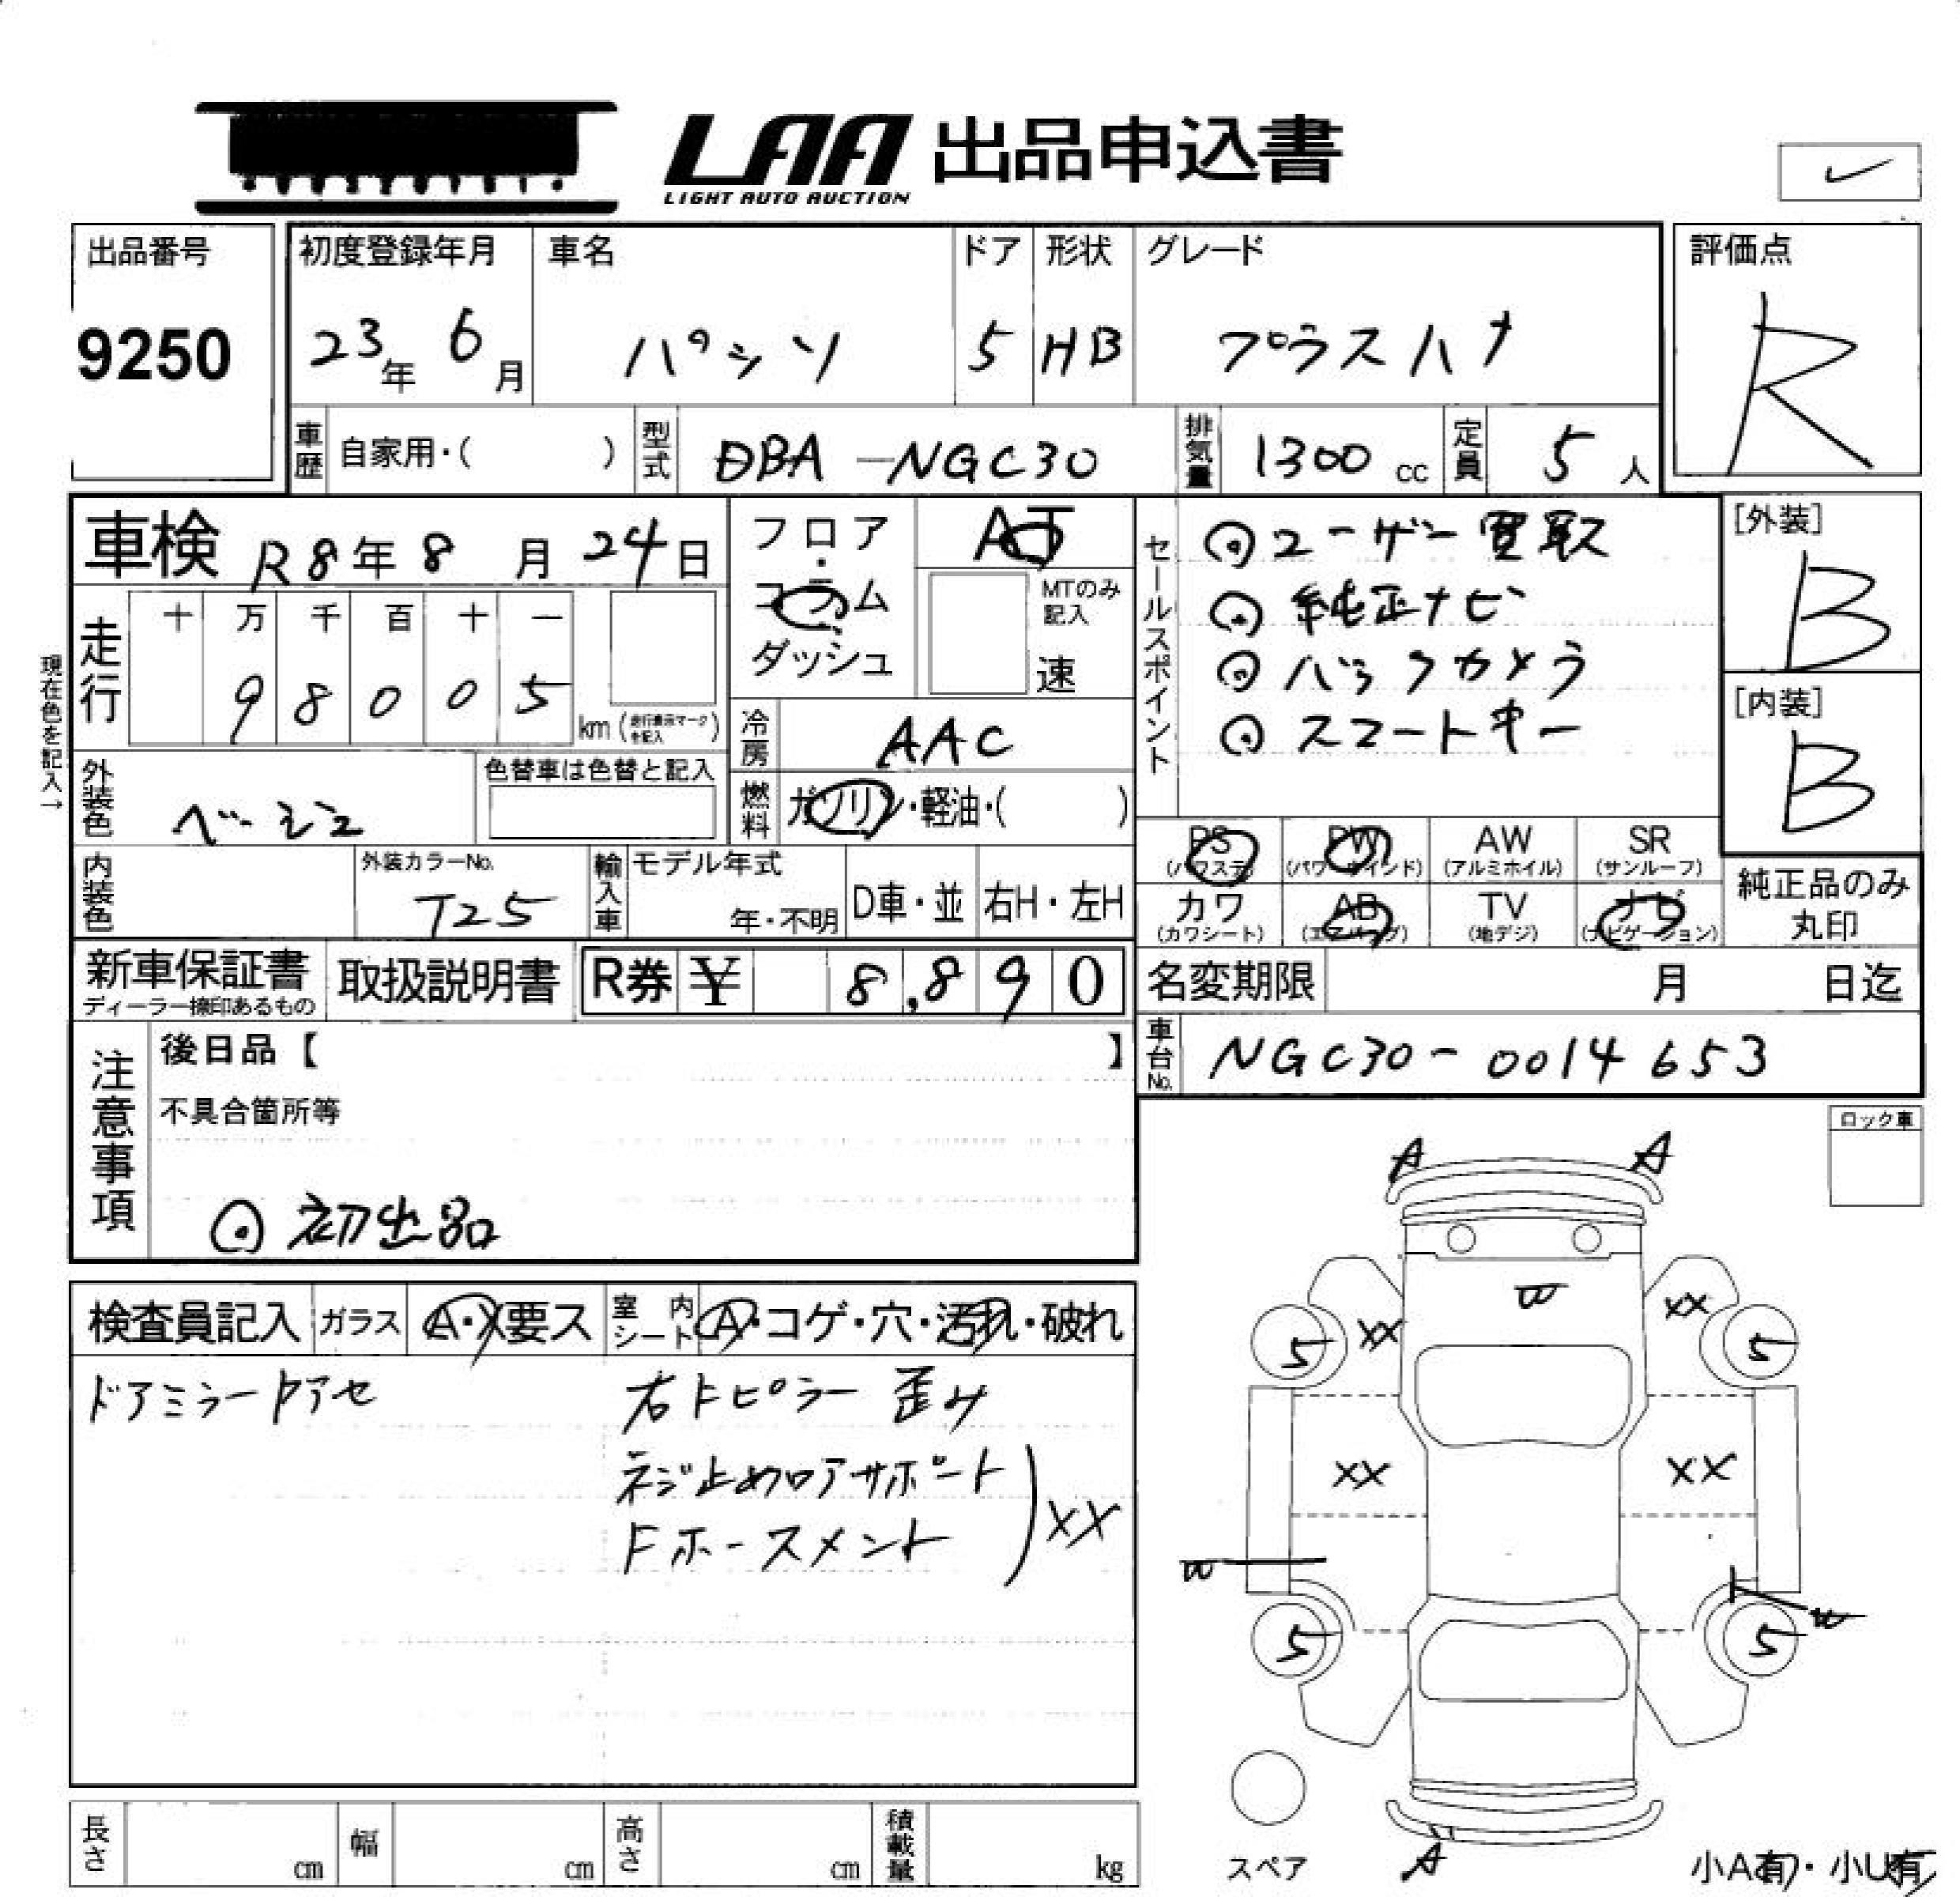 LAA 出品申込書
LIGHT AUTO AUCTION
出品番号
9250
初度登録年月
23年 6月
車名
パッソ
ドア
5
形状
HB
グレード
プラスハナ
評価点
R
車歴
自家用・( )
型式
DBA-NGC30
排気量
1300 cc
定員
5 人
車検 R8年8月24日
フロア・コラム
ダッシュ
AT
MTのみ記入
速
セールスポイント
⊙ユーザー買取
⊙純正ナビ
⊙バックカメラ
⊙スマートキー
[外装]
B
[内装]
B
現在色を記入→
走行
十 万 千 百 十 一
9 8 0 0 5
km (走行表示マークを記入)
冷房
AAC
外装色
ベージュ
色替車は色替と記入
燃料
ガソリン・軽油・( )
PS (パワステ)
PW (パワーウインド)
AW (アルミホイル)
SR (サンルーフ)
内装色
外装カラーNo.
T25
輸入車
モデル年式
年・不明
D車・並
右H・左H
カワ (カワシート)
AB (エアバッグ)
TV (地デジ)
ナビ (ナビゲーション)
純正品のみ丸印
新車保証書
ディーラー捺印あるもの
取扱説明書
R券 ¥ 8,890
名変期限 月 日迄
車台No.
NGC30-0014653
注意事項
後日品【 】
不具合箇所等
⊙初出品
ロック車
検査員記入
ガラス
A・X要ス
室内シート
A・コゲ・穴・汚れ・破れ
ドアミラートアセ
右Fピラー歪み
ネジ止めロアサポート
Fホースメント
XX
A A
W
XX XX
5 5
XX XX
W W
5 5
A
スペア
小A有・小U有
長さ cm
幅 cm
高さ cm
積載量 kg